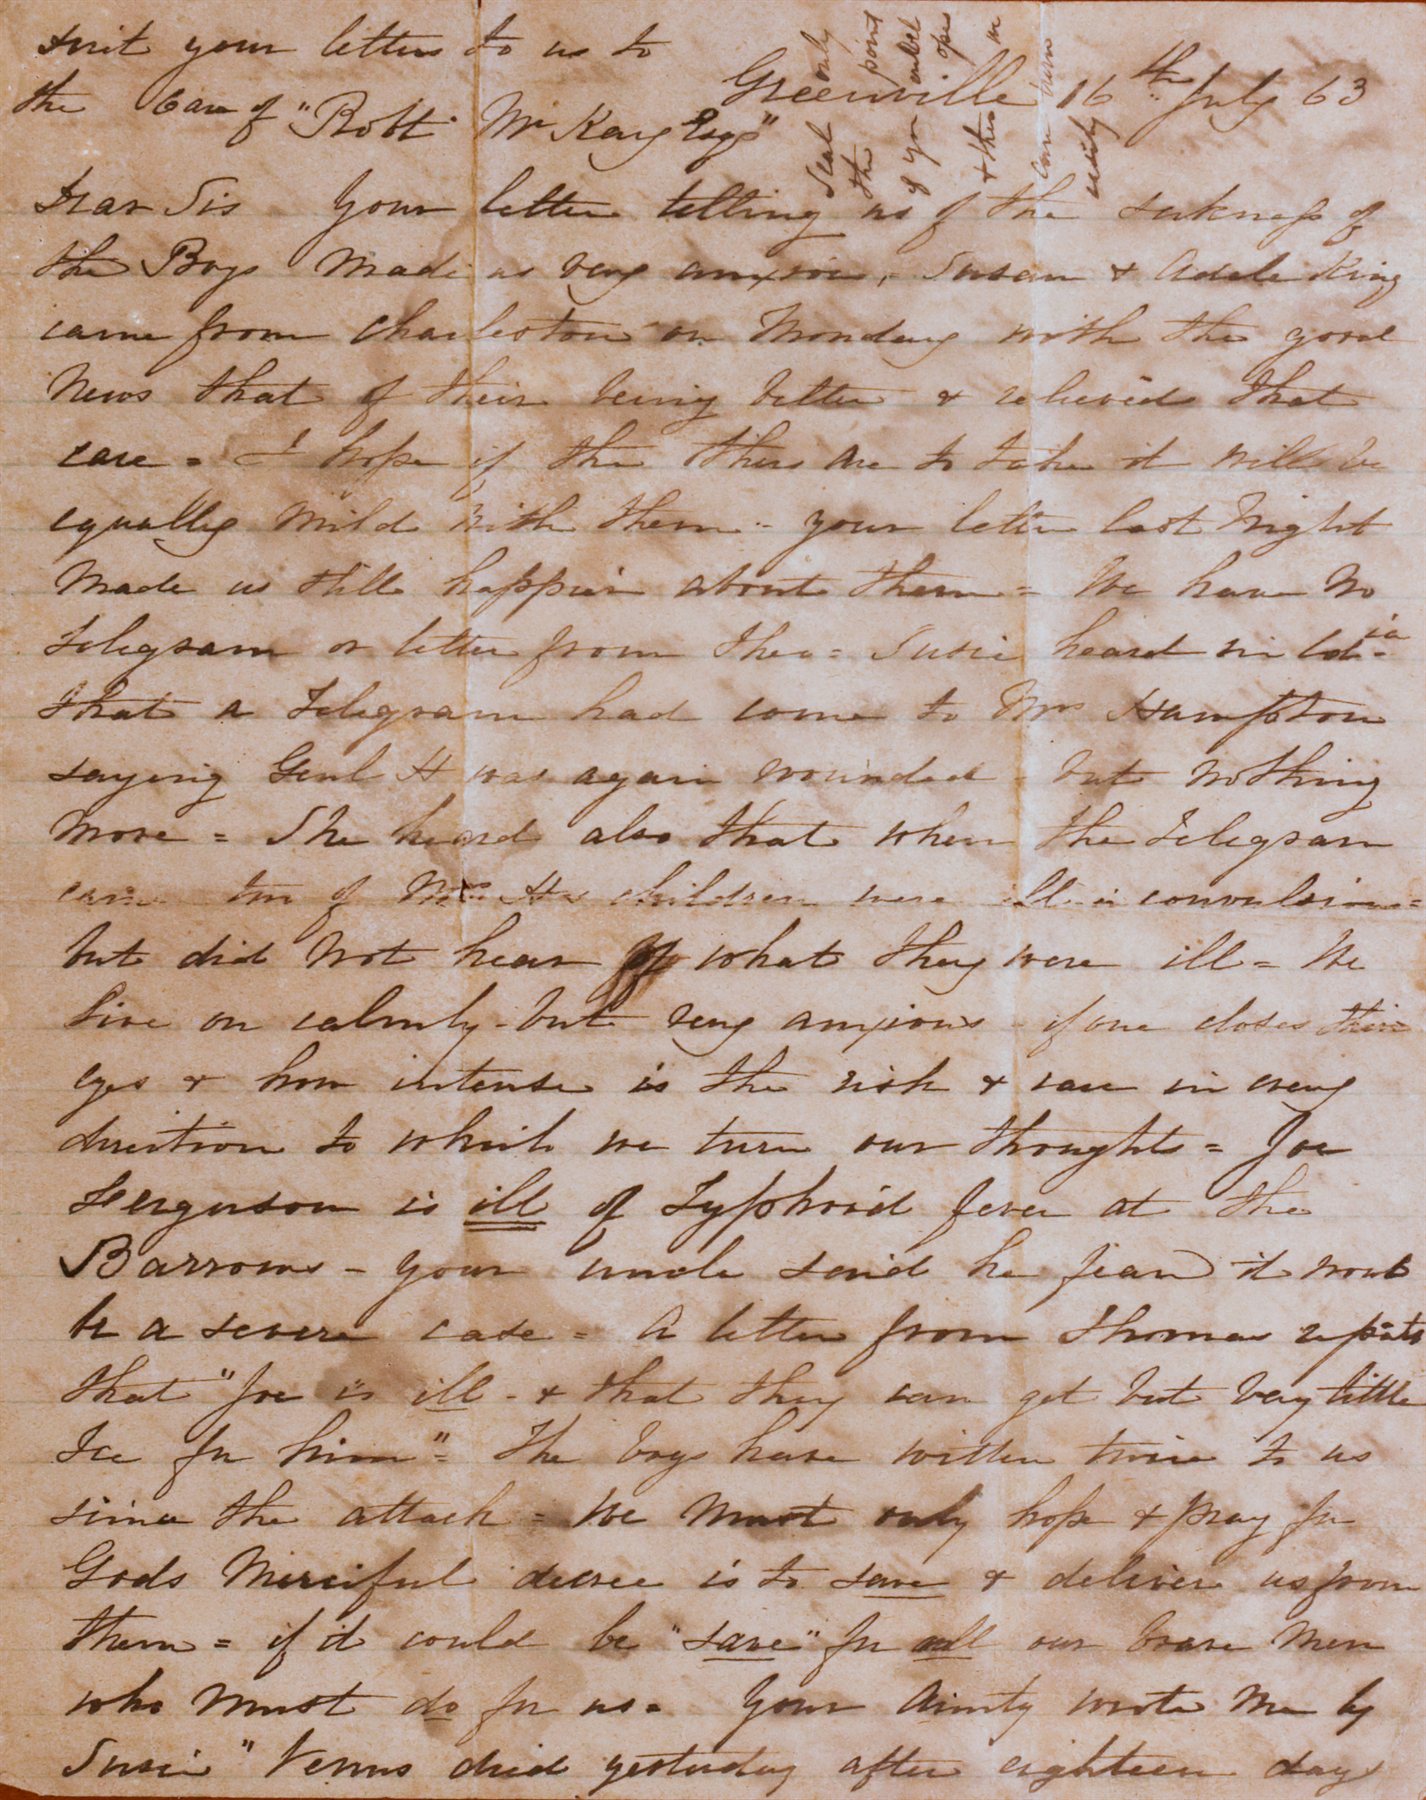 your letters to us to
the Care of "Robt McKay Esqr"
Greenville 16th July 63
Seal only
the point
of your
ope
& then
can turn
easily
Dear Sis Your letter telling us of the sickness of
the Boys Made us very anxious, Susan & Adele King
came from Charleston on Monday with the good
News that of their being better & relieved that
care = I hope if the others are to take it will be
equally mild with them - your letter last Night
Made us still happier about them = We have No
Telegram or letter from Theo = Susie heard in Cola =
that a Telegram had come to Mrs Hampton
saying Genl H was again wounded - but nothing
More = She heard also that when the Telegram
came two of Mrs Hs children were ill in convulsions =
but did Not hear of what they were ill = We
live on calmly - but very anxious - if one closes their
eyes & how intense is the risk & care in every
direction to which we turn our thoughts = Joe
Ferguson is ill of Typhoid fever at the
Barrows - your uncle said he feard it would
be a severe case = A letter from Thomas repeats
that "Joe is ill - & that they can get but very little
Ice for him" = The boys have written twice to us
since the attack = We Must only hope & pray for
Gods Merciful decree is to save & deliver us from
them = if it could be "save" for all our brave Men
who Must do for us = Your Aunty wrote Me by
Susie "Venus died yesterday after eighteen days